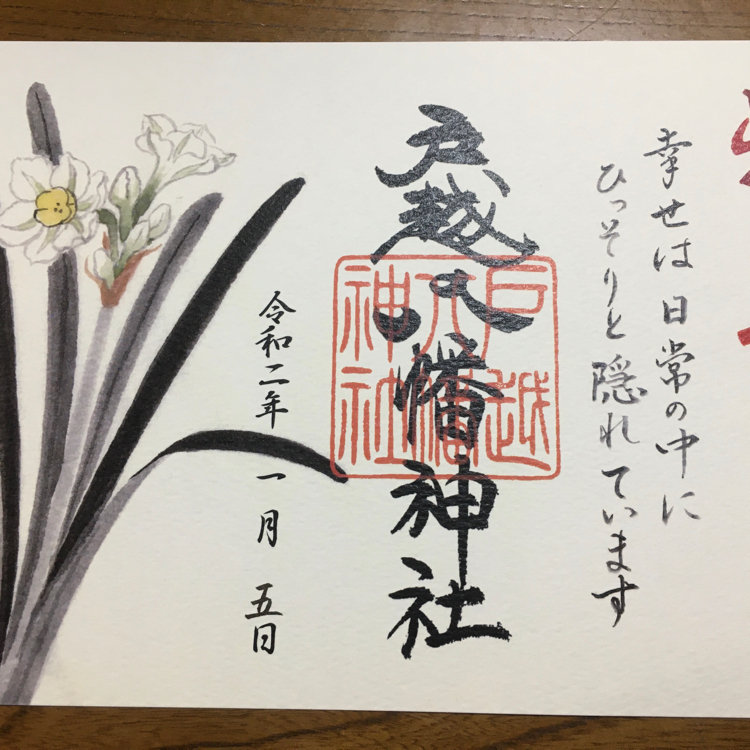 幸せは日常の中に
ひっそりと隠れています
戸越八幡神社
戸越
八幡
神社
令和二年 一月 五日